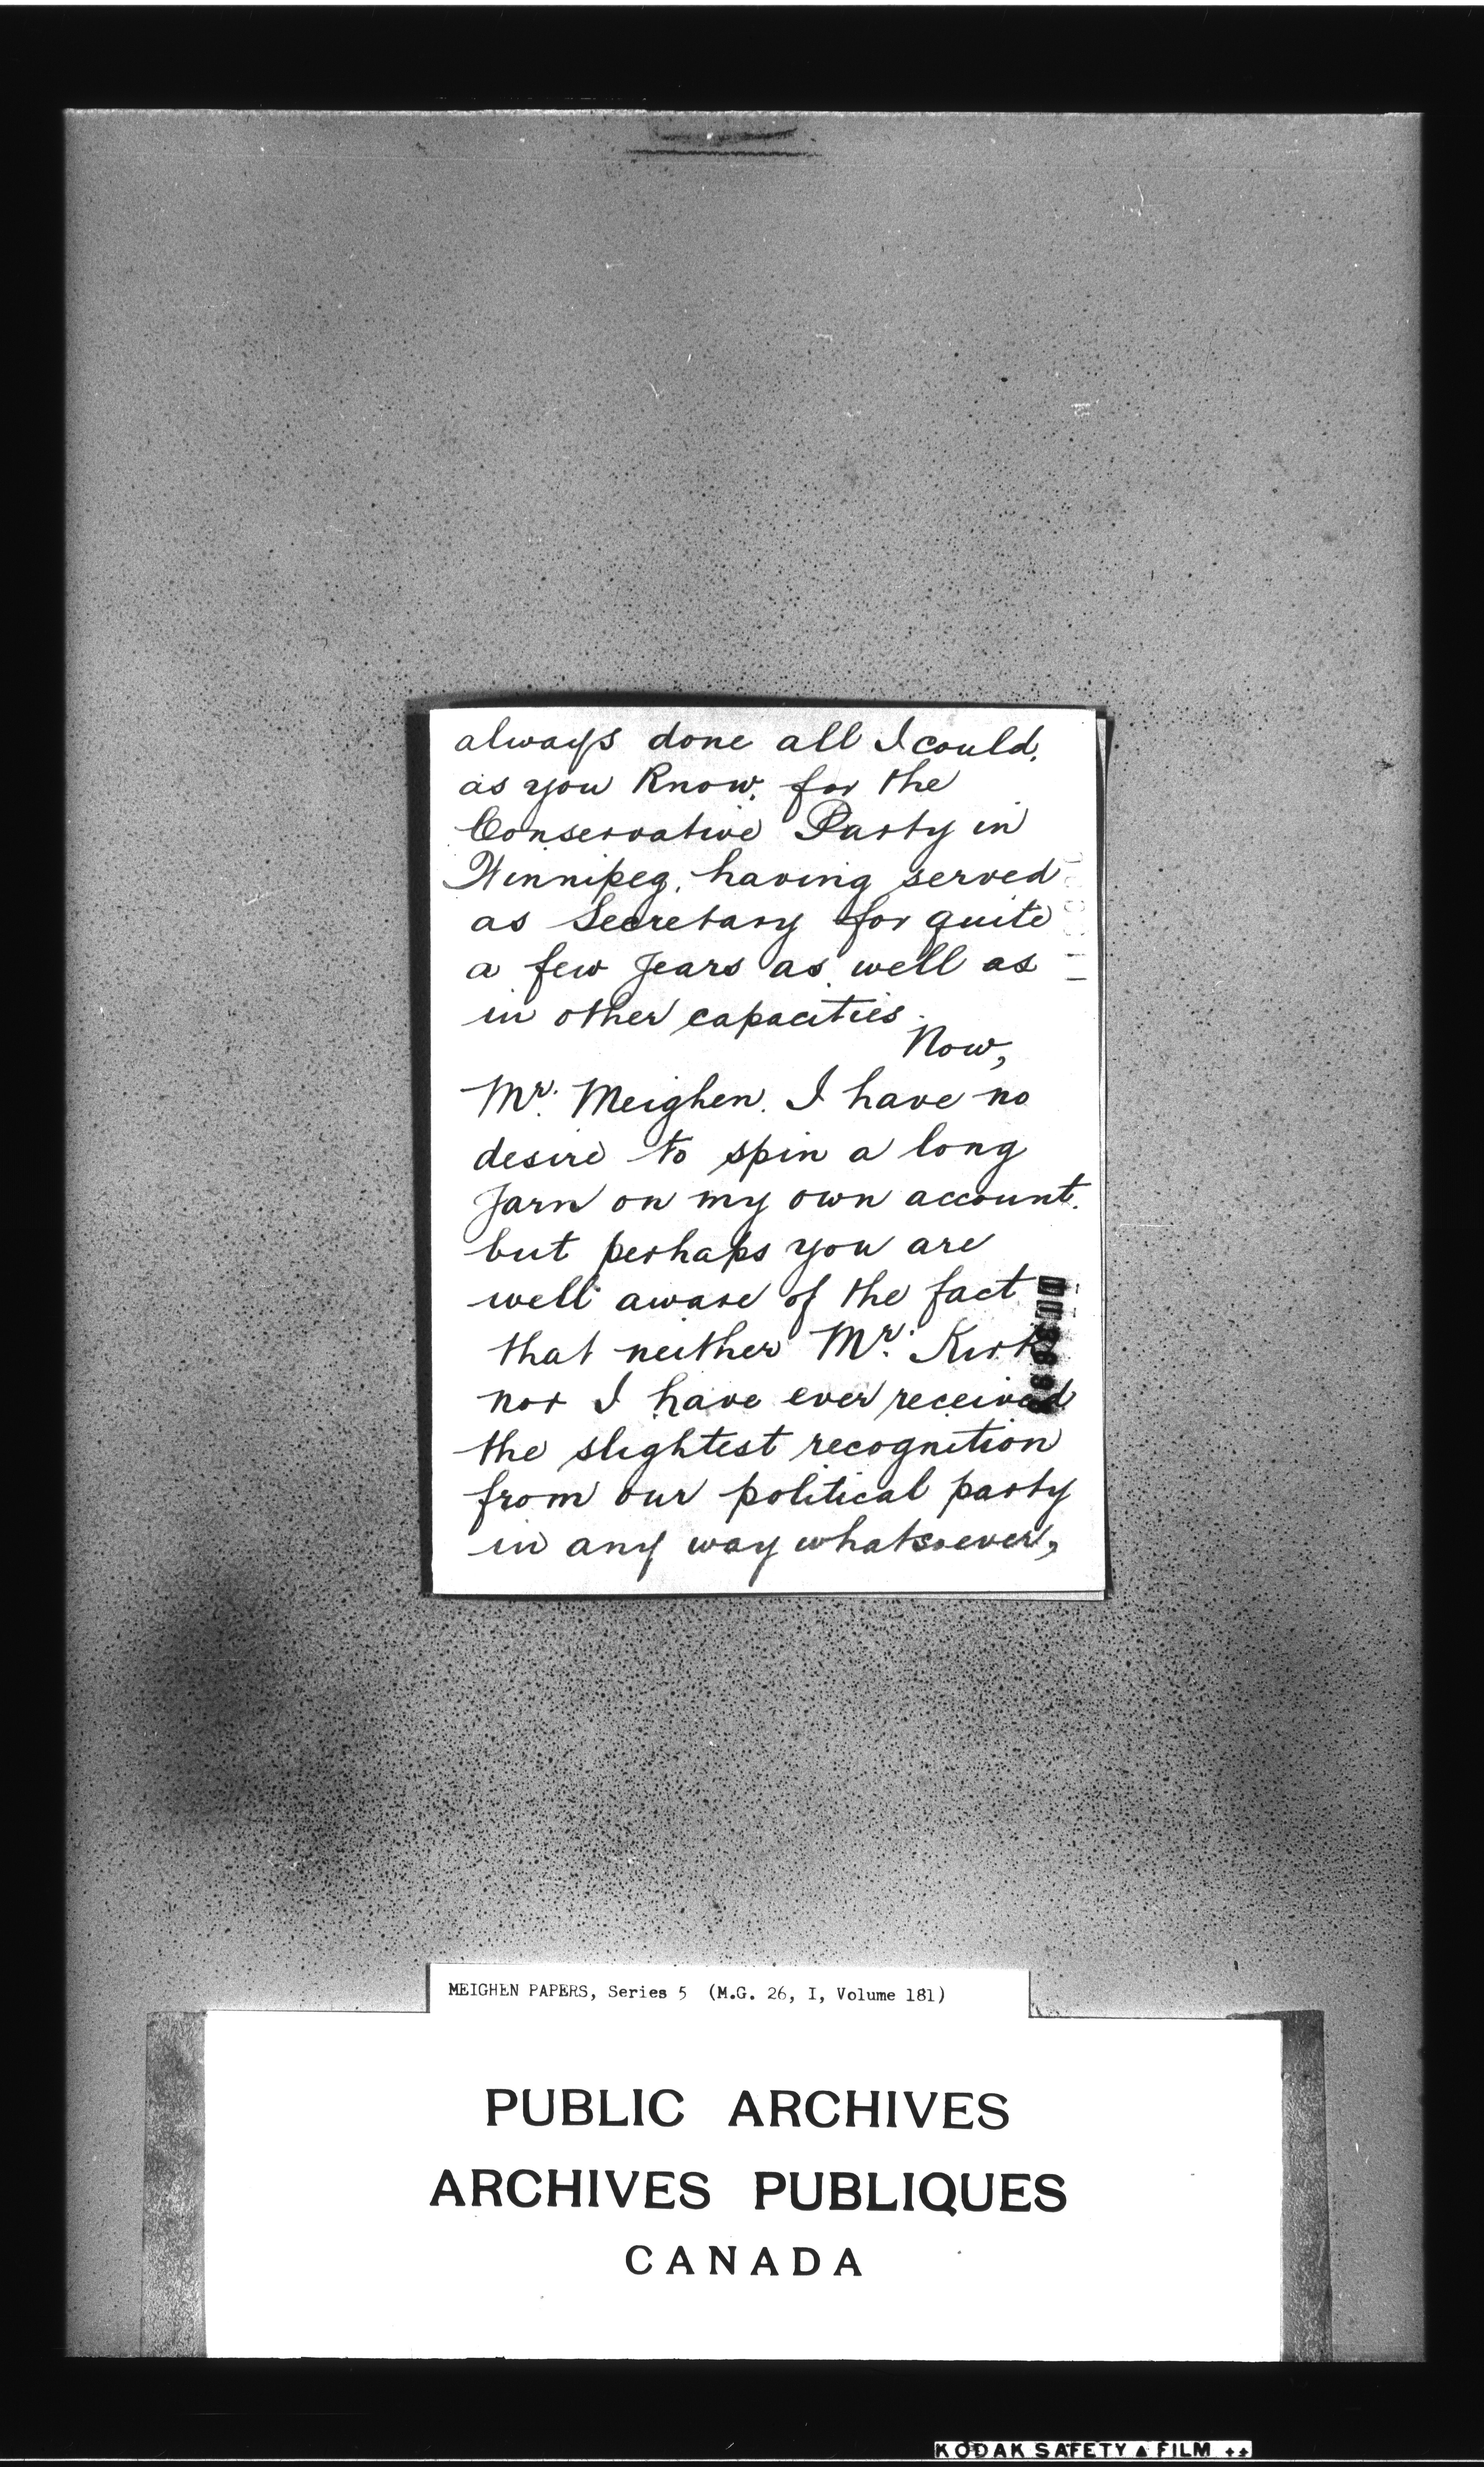 always done all I could,
as you know, for the
Conservative Party in
Winnipeg, having served
as Secretary for quite
a few years as well as
in other capacities.
Now,
Mr. Meighen, I have no
desire to spin a long
yarn on my own account.
but perhaps you are
well aware of the fact
that neither Mr. Kirk
nor I have ever received
the slightest recognition
from our political party
in any way whatsoever,
MEIGHEN PAPERS, Series 5 (M.G. 26, I, Volume 181)
PUBLIC ARCHIVES
ARCHIVES PUBLIQUES
CANADA
KODAK SAFETY FILM